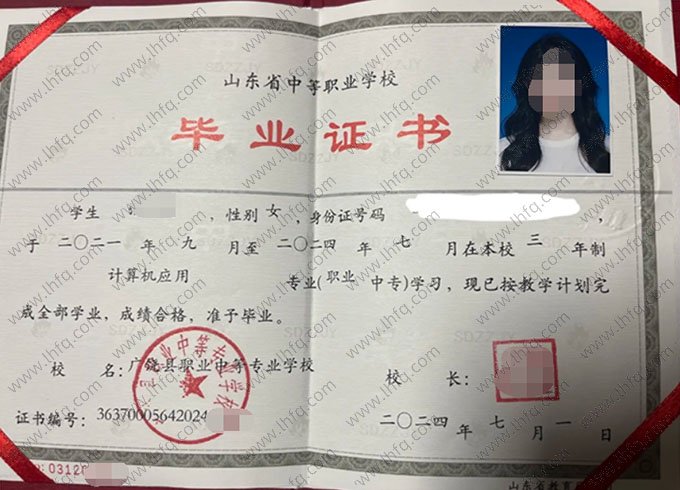 山东省中等职业学校
毕业证书
学生 ，性别 女 ，身份证号码 ，
于 二〇二一 年 九 月至 二〇二四 年 七 月在本校 三 年制
计算机应用 专业（职业 中专）学习，现已按教学计划完
成全部学业，成绩合格，准予毕业。
校 名：广饶县职业中等专业学校
校 长：
证书编号：36370005642024
二〇二四 年 七 月 一 日
0312
山东省教育
www.lhfq.com
SDZZJY